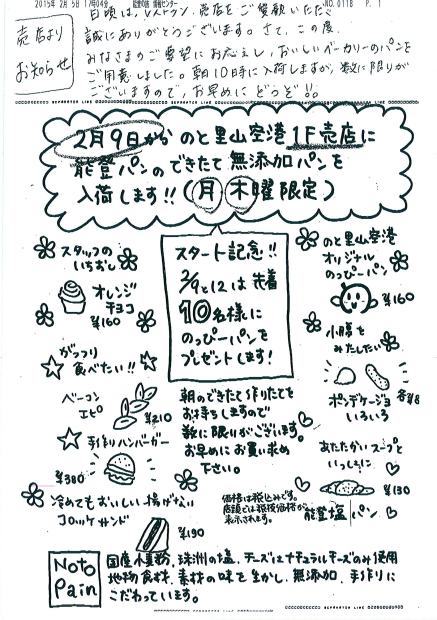 2015年 2月 5日 17時04分
NO. 0118 P. 1
売店より
お知らせ
日頃は、レストラン、売店をご愛顧いただき、
誠にありがとうございます。さて、この度、
みなさまのご要望にお応えし、おいしいベーカリーのパンを
ご用意しました。朝10時に入荷しますが、数に限りが
ございますので、お早めにどうぞ!!
SEPARATOR LINE
SEPARATOR LINE
2月9日から のと里山空港 1F売店に
能登パンのできたて無添加パンを
入荷します!!(月 木曜限定)
スタッフの
いちおし
オレンジ
チョコ
¥160
がっつり
食べたい!!
ベーコン
エピ
¥210
手作りハンバーガー
¥380
冷めてもおいしい揚げない
コロッケサンド
¥190
スタート記念!!
2/9と12は先着
10名様に
のっぴーパンを
プレゼントします!
朝のできたて作りたてを
お持ちしますので
数に限りがございます。
お早めにお買い求め
下さい。
価格は税込みです。
店頭では税抜価格が
表示されます。
のと里山空港
オリジナル
のっぴーパン
¥160
小腹を
みたしたい
ポンデケージョ
いろいろ
あたたかいスープと
いっしょに
¥130
能登塩パン
Noto
Pain
国産小麦粉、珠洲の塩、チーズはナチュラルチーズのみ使用
地物食材、素材の味を生かし、無添加、手作りに
こだわっています。
SEPARATOR LINE